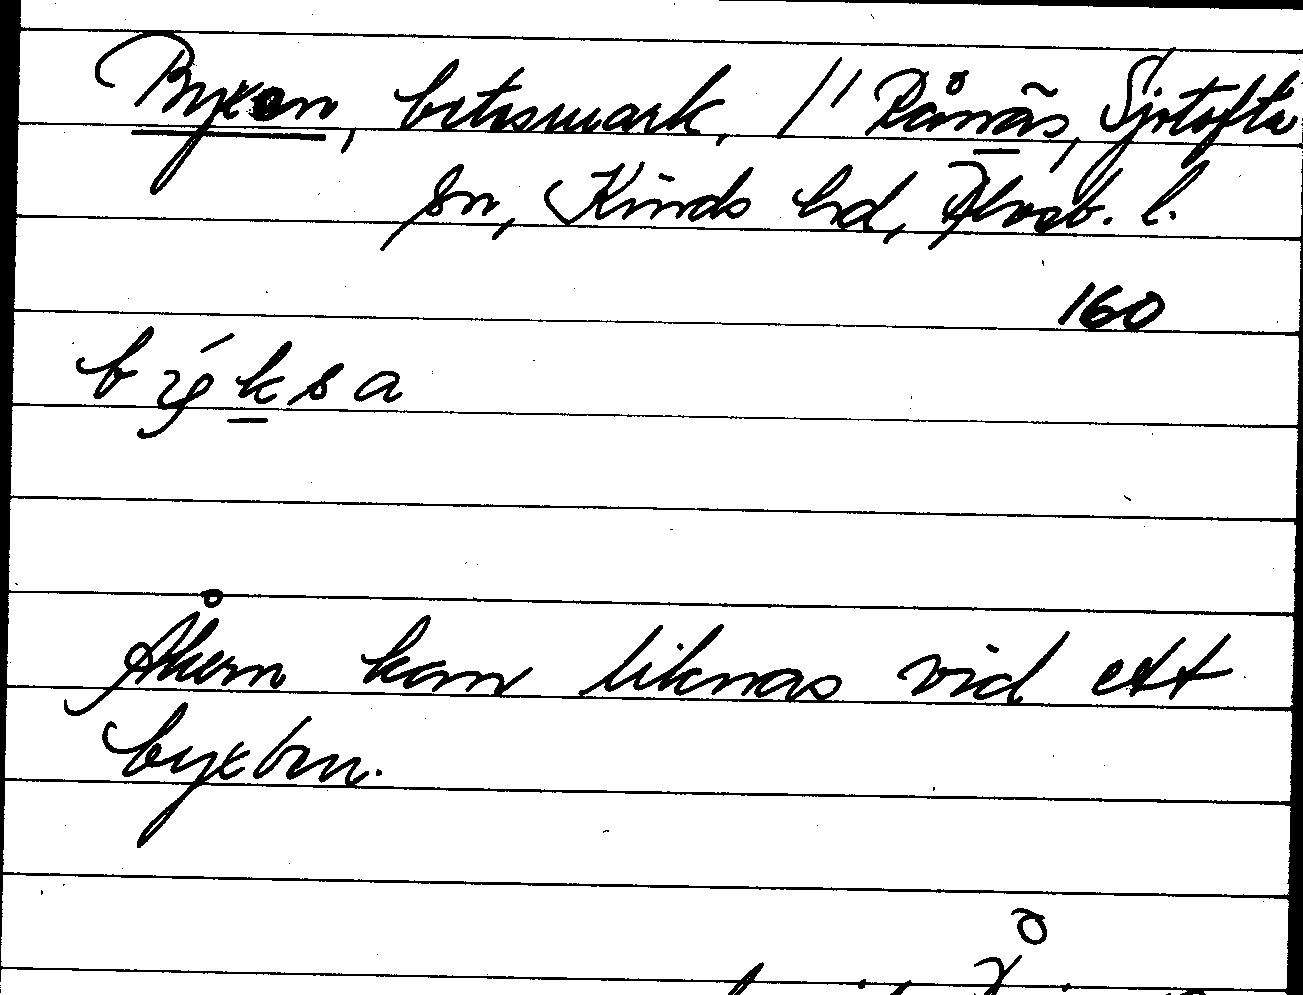 Byxen, betesmark, 1/1 Rånäs, Sjötofta
sn, Kinds hd, Älvsb. l.
160
býksa
Åkern kan liknas vid ett
byxben.